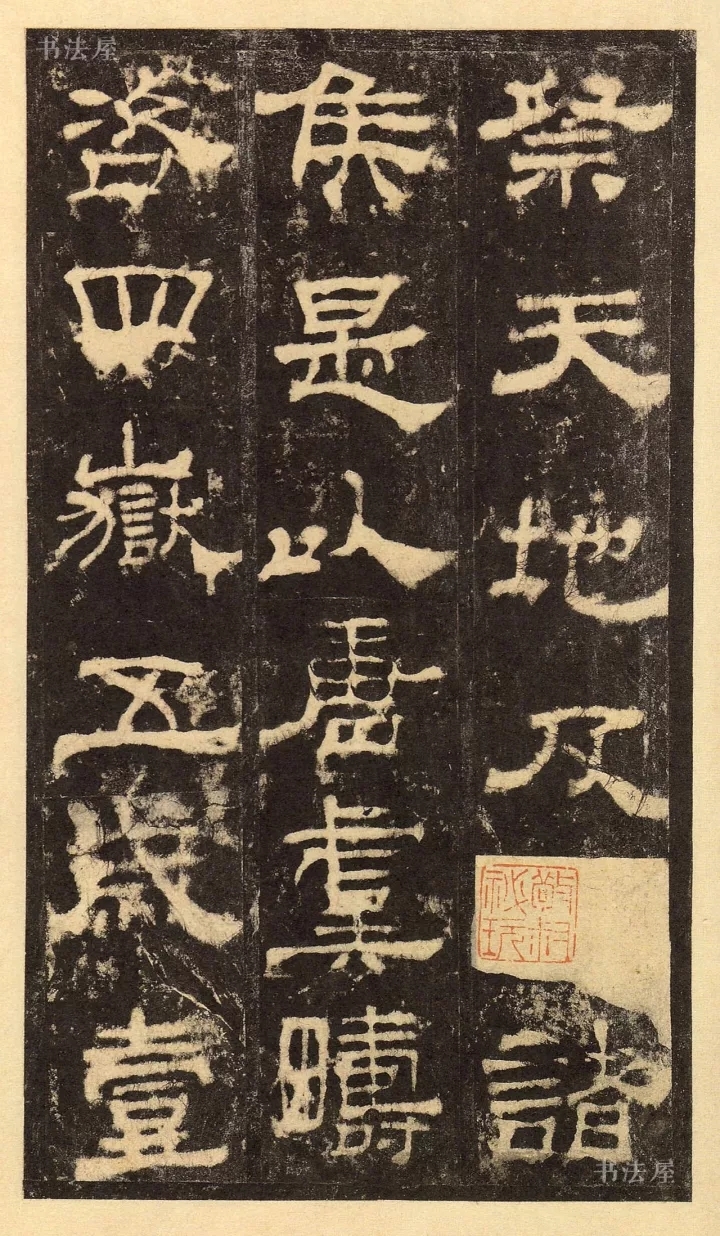 书法屋
祭天地及諸
侯是以唐虞疇
咨四嶽五歲壹
书法屋